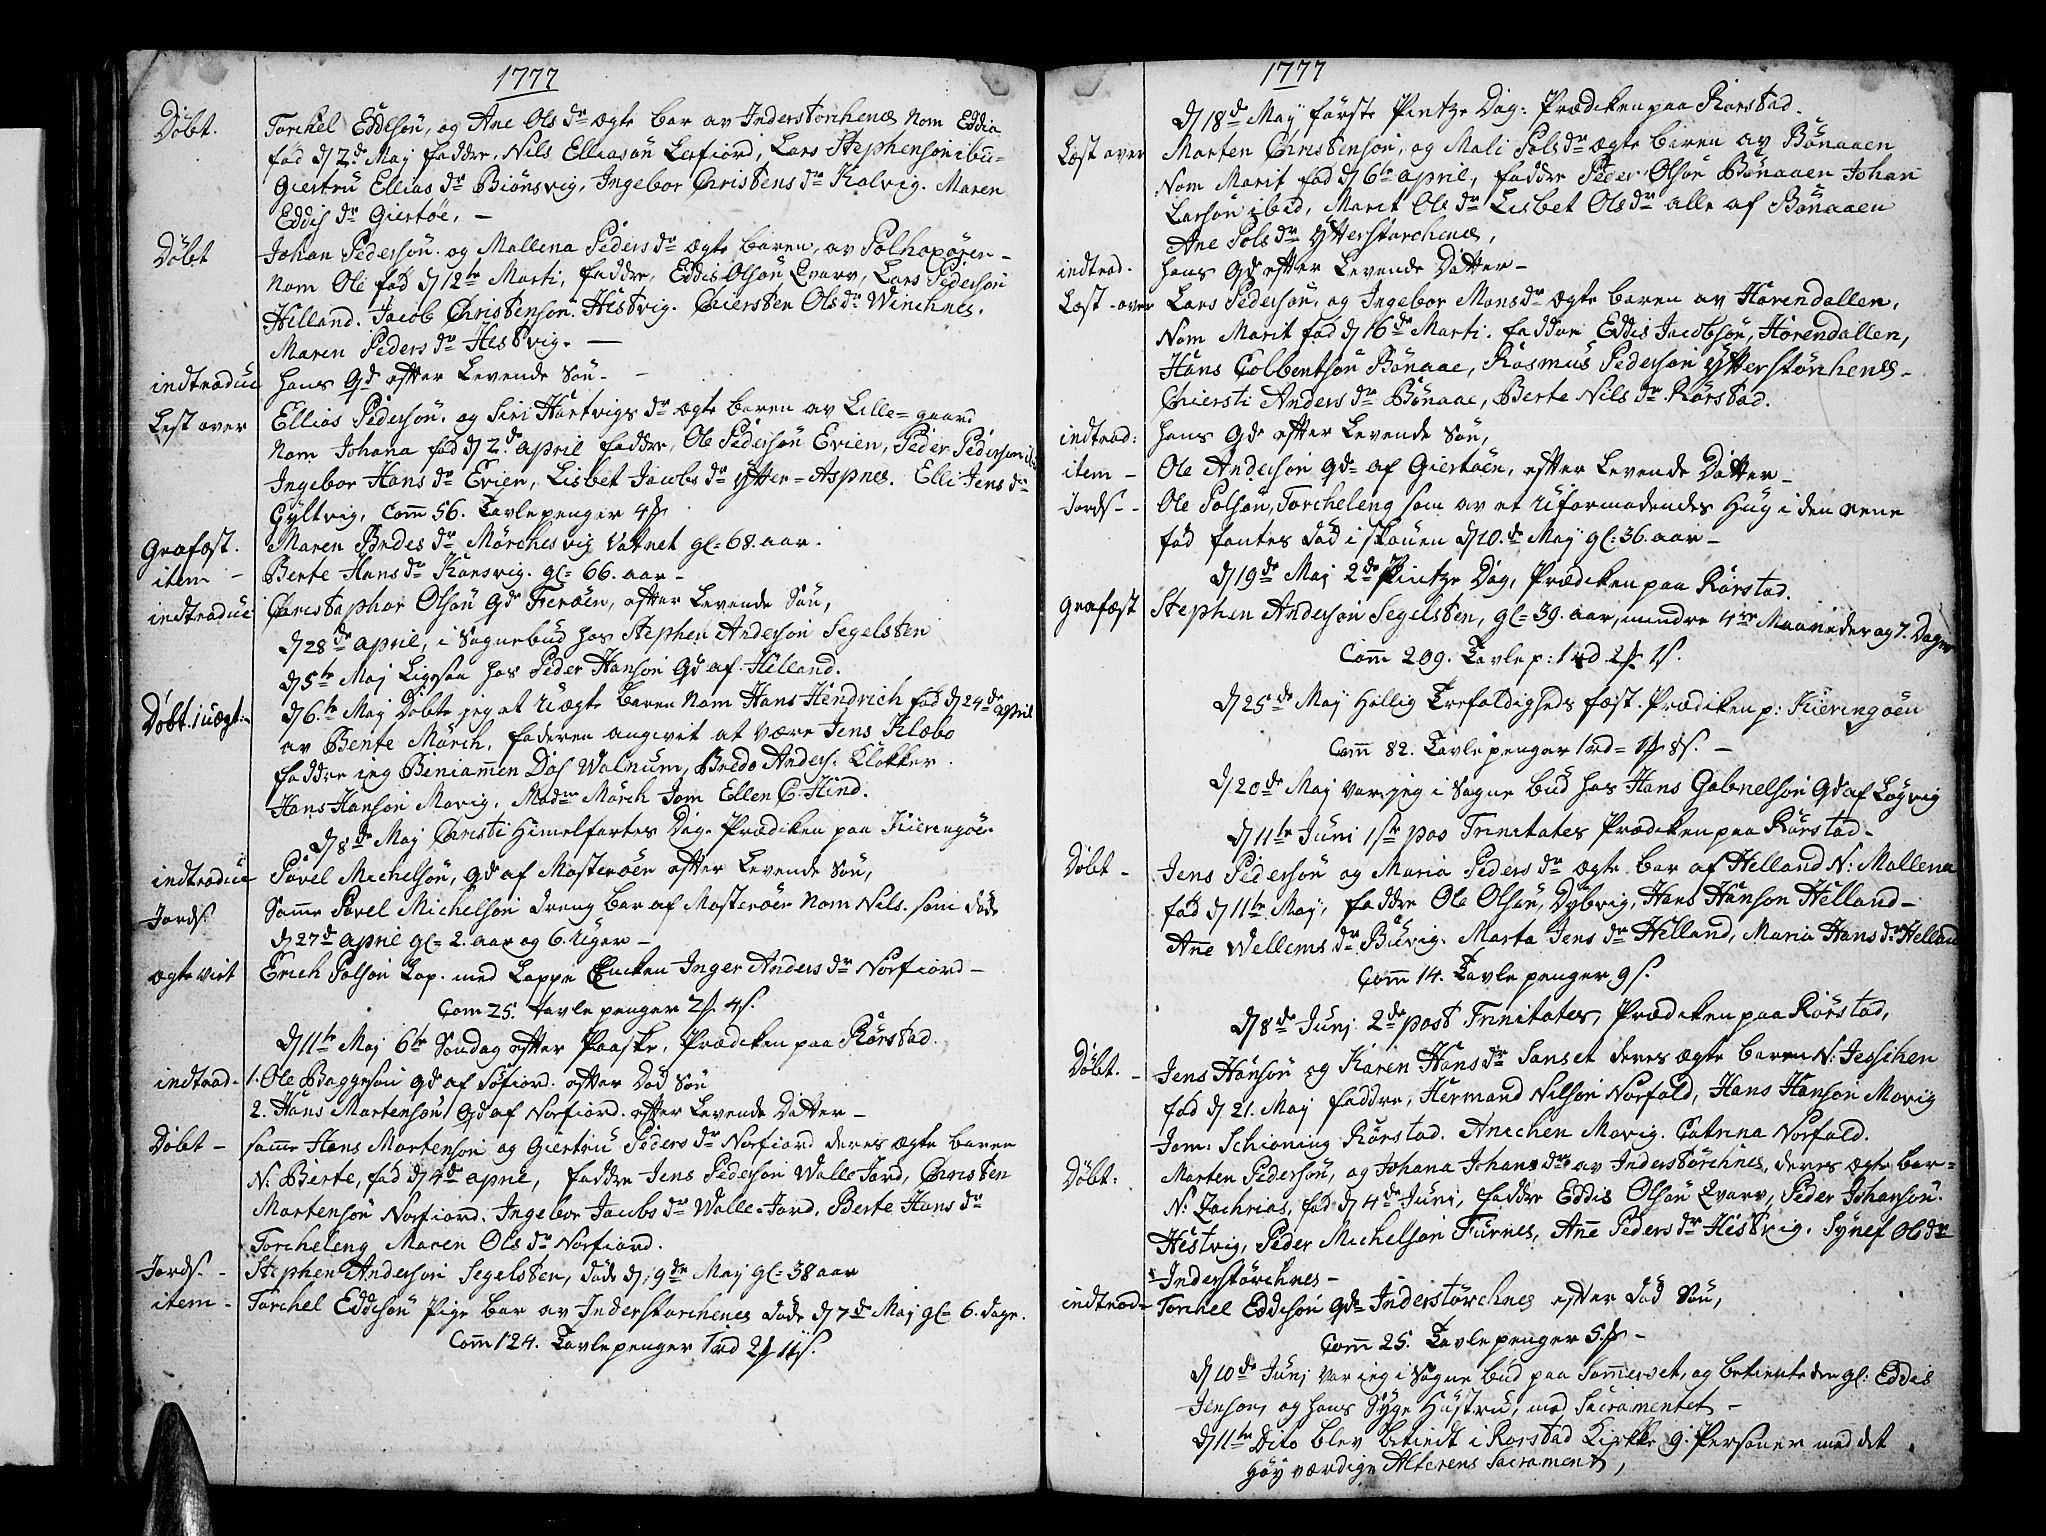 1777
Døbt. Torchel Eddesön, og Ane Ols dr ægte bar av Inderstorchenæs Nom Eddia
fød d 2de Maj faddre, Nils Elliasön Lerfiord, Lars Stephenson ibid
Giertru Ellias dr Biönsvig, Ingebor Christens dr Kalvig. Maren
Eddis dr Giertöe, —
Døbt Johan Pedersön og Mallena Peders dr ægte baren, av
Nom Ole fød d 12te Marti, faddre, Eddis Olsön Qvarv, Lars Pedersön
Helland. Jacob Christenson Hestvig. Chiersten Ols dr Winchnes.
Maren Peders dr Hestvig. —
indtroduc hans Qde efter Levende Sön —
Lest over Ellias Pedersön og Siri Hartvigs dr ægte baren av Lille-gaard
Nom Johana fød d 2de april faddre, Ole Pedersön Evien, Peder Pederson ibid
Ingebor Hans dr Evien, Lisbet Jacobs dr Ytter-Aspnes. Elli Jens dr
Gyltvig, Com 56. Tavlepenger 4
Grafæst. Maren dr Mörchesvig Vatnet gl= 68. aar.
item - Berte Hans dr Kansvig. gl= 66. aar -
indtroduc Christophor Olsön Qde Feröen, efter Levende Sön,
d 28de april, i Sognebud hos Stephen Anderson Segelsten
d 5te Maj Ligesaa hos Peder Hanson Qd af Helland.
Døbt i uægt: d 6te Maj Döbte jeg et Uægte baren Nom Hans Hendrich fød d 24de april
av Bente Mörch, faderen angivet at være Jens Klæbo
faddre jeg Beniamen Dos Walnum, Bredo Anders. Klokker
Hans Hanson Movig, Madme Mörch Jom Ellen C. Hind.
d 8de Maj Christi Himelfartes Dag. Prædiken paa Kieringöe
indtroduc Povel Michelsön, Qd af Mosteröen efter Levende Sön,
Jords. Samme Povel Michelson dreng bar af Mosteröen Nom Nils. som döde
d 27de april gl= 2. aar og 6. Uger —
ægte viet Erich Polson Lap. med Lappe Encken Inger Anders dr Norfiord —
Com 25. tavlepenger 2 4 s.
d 11te Maj 6te Söndag efter Paaske, Prædiken paa Rörstad.
indtrod - 1. Ole Baggeson Qd af Söfiord. efter Död Sön
2. Hans Martensön Qd af Norfiord. efter Levende Datter —
Døbt - samme Hans Martenson og Giertru Peders dr Norfiord deres ægte baren
N: Berte, fød d 4de april, faddre Jens Pederson Walle Jord, Christen
Martensön Norfiord. Ingebor Jacobs dr Walle-Jord, Berte Hans dr
Torcheleng Maren Ols dr Norfiord.
Jords. - Stephen Anderson Segelsten, döde d 9de Maj gl= 38 aar
item - Torchel Eddesön Pige bar av Inderstorchenes döde d 7de Maj gl= 6. dage.
Com 124. Tavlepenger 1rd 2 11 s.
1777
d 18de Maj förste Pintze Dag: Prædiken paa Rorstad.
Læst over Marten Christensön, og Mali Pols dr ægte baren av Bönaaen
Nom Marit fød d 6te april, faddre Peder Olsön Bönaaen Johan
Larsön ibid, Marit Ols dr Lisbet Ols dr alle af Bönaaen
Ane Pols dr Ytterstorchenæ,
indtrod. hans Qde efter Levende Datter —
Læst over Lars Pedersön, og Ingebor Mons dr ægte baren av Hörendallen,
Nom Marit fød d 16de Marti. faddre Eddis Jacobsön, Hörendallen,
Hans Colbentsön Bönaae, Rasmus Pederson Ytterstörchenes —
Chiersti Anders dr Bönaae, Berte Nils dr Rörstad.
indtrod: hans Qde efter Levende Sön,
item - Ole Anderson Qde af Giertöen, efter Levende Datter —
Jords - Ole Polsön, Torcheleng som av et uformodendes Hug i den eene
fod fantes död i skouen d 10de Maj gl: 36. aar —
d 19de Maj 2de Pintze Dag, Prædiken paa Rörstad.
Grafæst Stephen Anderson Segelsten, gl= 39. aar, mindre 4re Maaneder og 7. Dager
Com 209. Tavle p: 1 rd 2 1s.
d 25de Maj Hellig Trefoldigheds fæst. Prædiken p: Kieringöen
Com 82. Tavlepenger 1rd= 1 8s. —
d 20de Maj var jeg i Sogne bud hos Hans Gabrielsön Qd af Løgvig
d 11te Juni 1ste pos Trinitates Prædiken paa Rörstad —
Døbt - Jens Pedersön og Maria Peders dr ægte bar af Helland N: Mallena
fød d 11te Maj, faddre Ole Olsön, Dybvig, Hans Hanson Helland —
Ane Wellems dr Buvig. Marta Jens dr Helland, Maria Hans dr Helland
Com 14. Tavlepenger 9 s.
d 8de Junj 2de post Trinitates, Prædiken paa Rörstad,
Døbt. - Jens Hansön og Karen Hans dr Sanset deres ægte baren N: Jessihen
fød d 21. Maj faddre, Hermand Nilson Norfold, Hans Hanson Movig
Jom: Schioning Rörstad. Anichen Movig. Catrina Norfold.
Døbt. Marten Pedersön, og Johana Johans dr av Inderstörchnes, deres ægte bar=
N: Zachrias, fød d 4de Juni, faddre Eddis Olsön Qvarv, Peder Johansön.
Hestvig, Peder Michelson Furnes, Ane Peders dr Hestvig. Synef Ols dr
Inderstörchnes —
indtrod- Torchel Eddeson Qde Inderstörchnes efter Död Sön,
Com 25. Tavlepenger 5 —
d 10de Junj var jeg i Sogne bud paa Sommerset, og betiente den gl: Eddis
Jenson, og hans Syge Hustru, med Sacramentet —
d 11te Dito blev betient i Rorstad Kirkke 9. Personer med det
Höyværdige Alterens Sacrament,